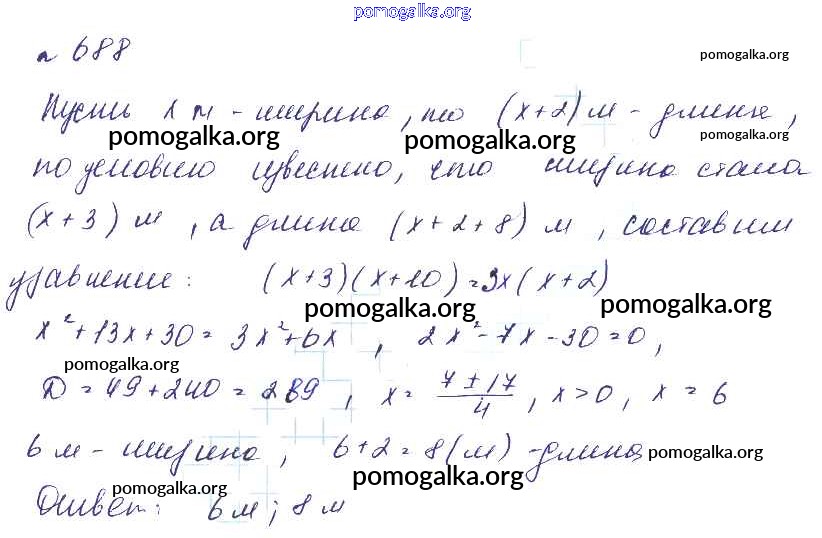 pomogalka.org
№ 688
pomogalka.org
Пусть x м - ширина, то (x+2) м - длина,
pomogalka.org pomogalka.org pomogalka.org
по условию известно, что ширина стала
(x+3) м, а длина (x+2+8) м, составим
уравнение: (x+3)(x+10)=3x(x+2)
pomogalka.org pomogalka.org
x²+13x+30=3x²+6x, 2x²-7x-30=0,
pomogalka.org
D=49+240=289, x=(7±17)/4, x>0, x=6
6 м - ширина, 6+2=8(м) - длина
pomogalka.org
pomogalka.org pomogalka.org
Ответ: 6 м; 8 м